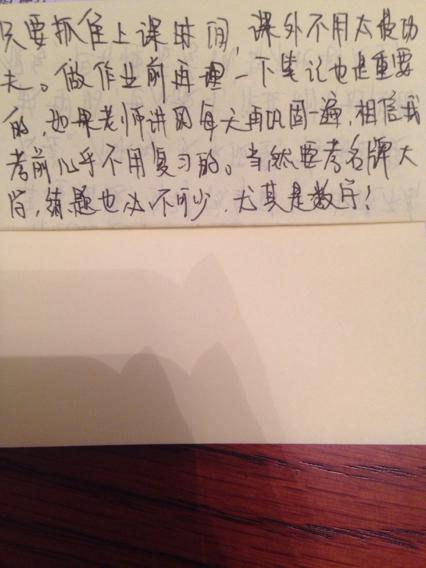 只要抓住上课时间，课外不用太使功
夫。做作业前再理一下笔记也是重要
的，如果老师讲的每天再巩固一遍，相信我
考前几乎不用复习的。当然要考名牌大
学，练题也必不可少，尤其是数学！